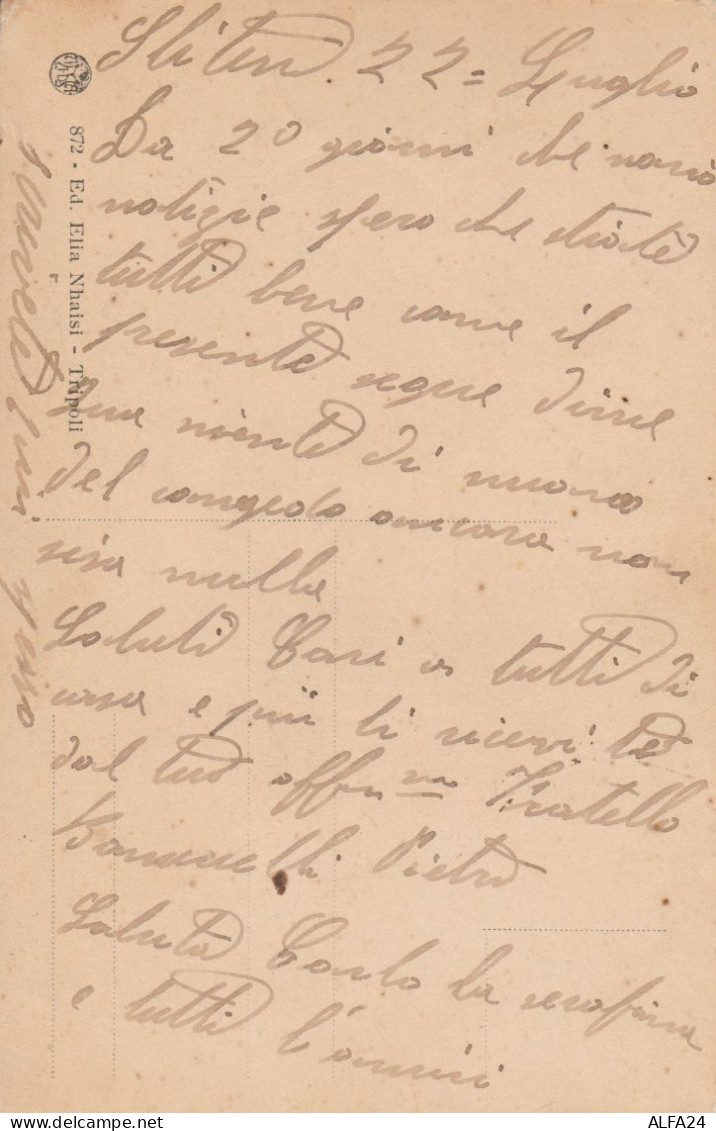 Sliten 22= Luglio
Da 20 giorni che non ò
notizie spero che stiate
tutti bene come il
presente segue dirne
Qua niente di nuovo
del congedo ancora non
si sa nulla
Saluti Cari a tutti di
casa e più li ricevi te
dal tuo affmo Fratello
Pietro
Saluta Carlo la serafina
e tutti l'amici
spesso
872 - Ed. Elia Nhaisi - Tripoli
ALFA24